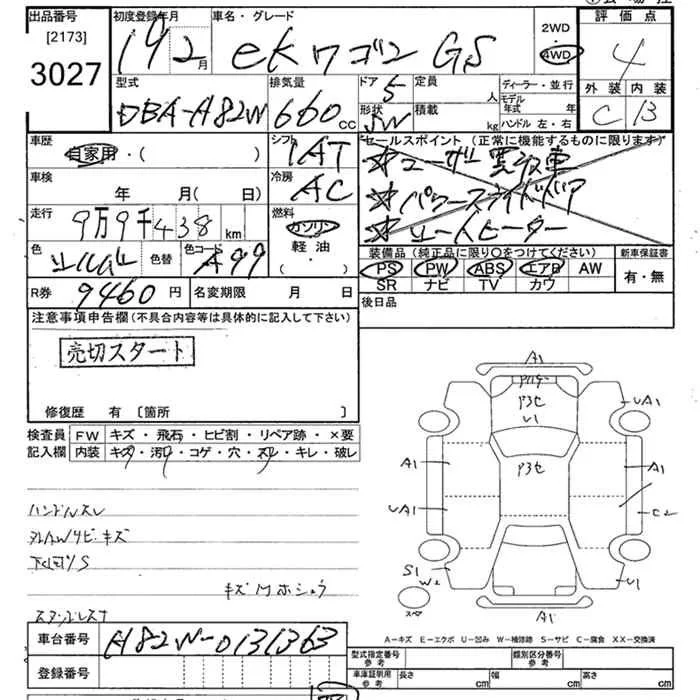 出品番号
[2173]
3027
初度登録年月
19 2月
車名・グレード
ekワゴン GS
2WD
4WD
評価点
4
外装 内装
C B
型式
DBA-H82W
排気量
660 cc
ドア 5
形状 SW
定員 人
積載 kg
ディーラー・並行
モデル年式 年
ハンドル 左・右
車歴
自家用・( )
シフト
IAT
セールスポイント (正常に機能するものに限ります)
☆ユーザー買取車
☆パワースライドドア
☆シートヒーター
車検
年 月( 日)
冷房
AC
走行
9万9千438 km
燃料
ガソリン
軽・油
( ・ )
色
シルバー
色替
色コード
A99
装備品 (純正品に限り〇をつけてください)
PS PW ABS エアB AW
SR ナビ TV カワ
新車保証書
有・無
R券
9460 円
名変期限 月 日
後日品
注意事項申告欄 (不具合内容等は具体的に記入して下さい)
売切スタート
修復歴 有 [箇所 ]
検査員
記入欄
FW キズ・飛石・ヒビ割・リペア跡・×要
内装 キズ・汚れ・コゲ・穴・スレ・キレ・破レ
ハンドルスレ
下回りS
A1
P3セ
U1
UA1
A1
P3セ
A1
UA1
C2
S1
W2
U1
スペア
A1
A-キズ E-エクボ U-凹み W-補修跡 S-サビ C-腐食 XX-交換済
車台番号
H82W-0131363
登録番号
型式指定番号
参考
類別区分番号
参考
車庫証明用
参考
長さ cm
幅 cm
高さ cm